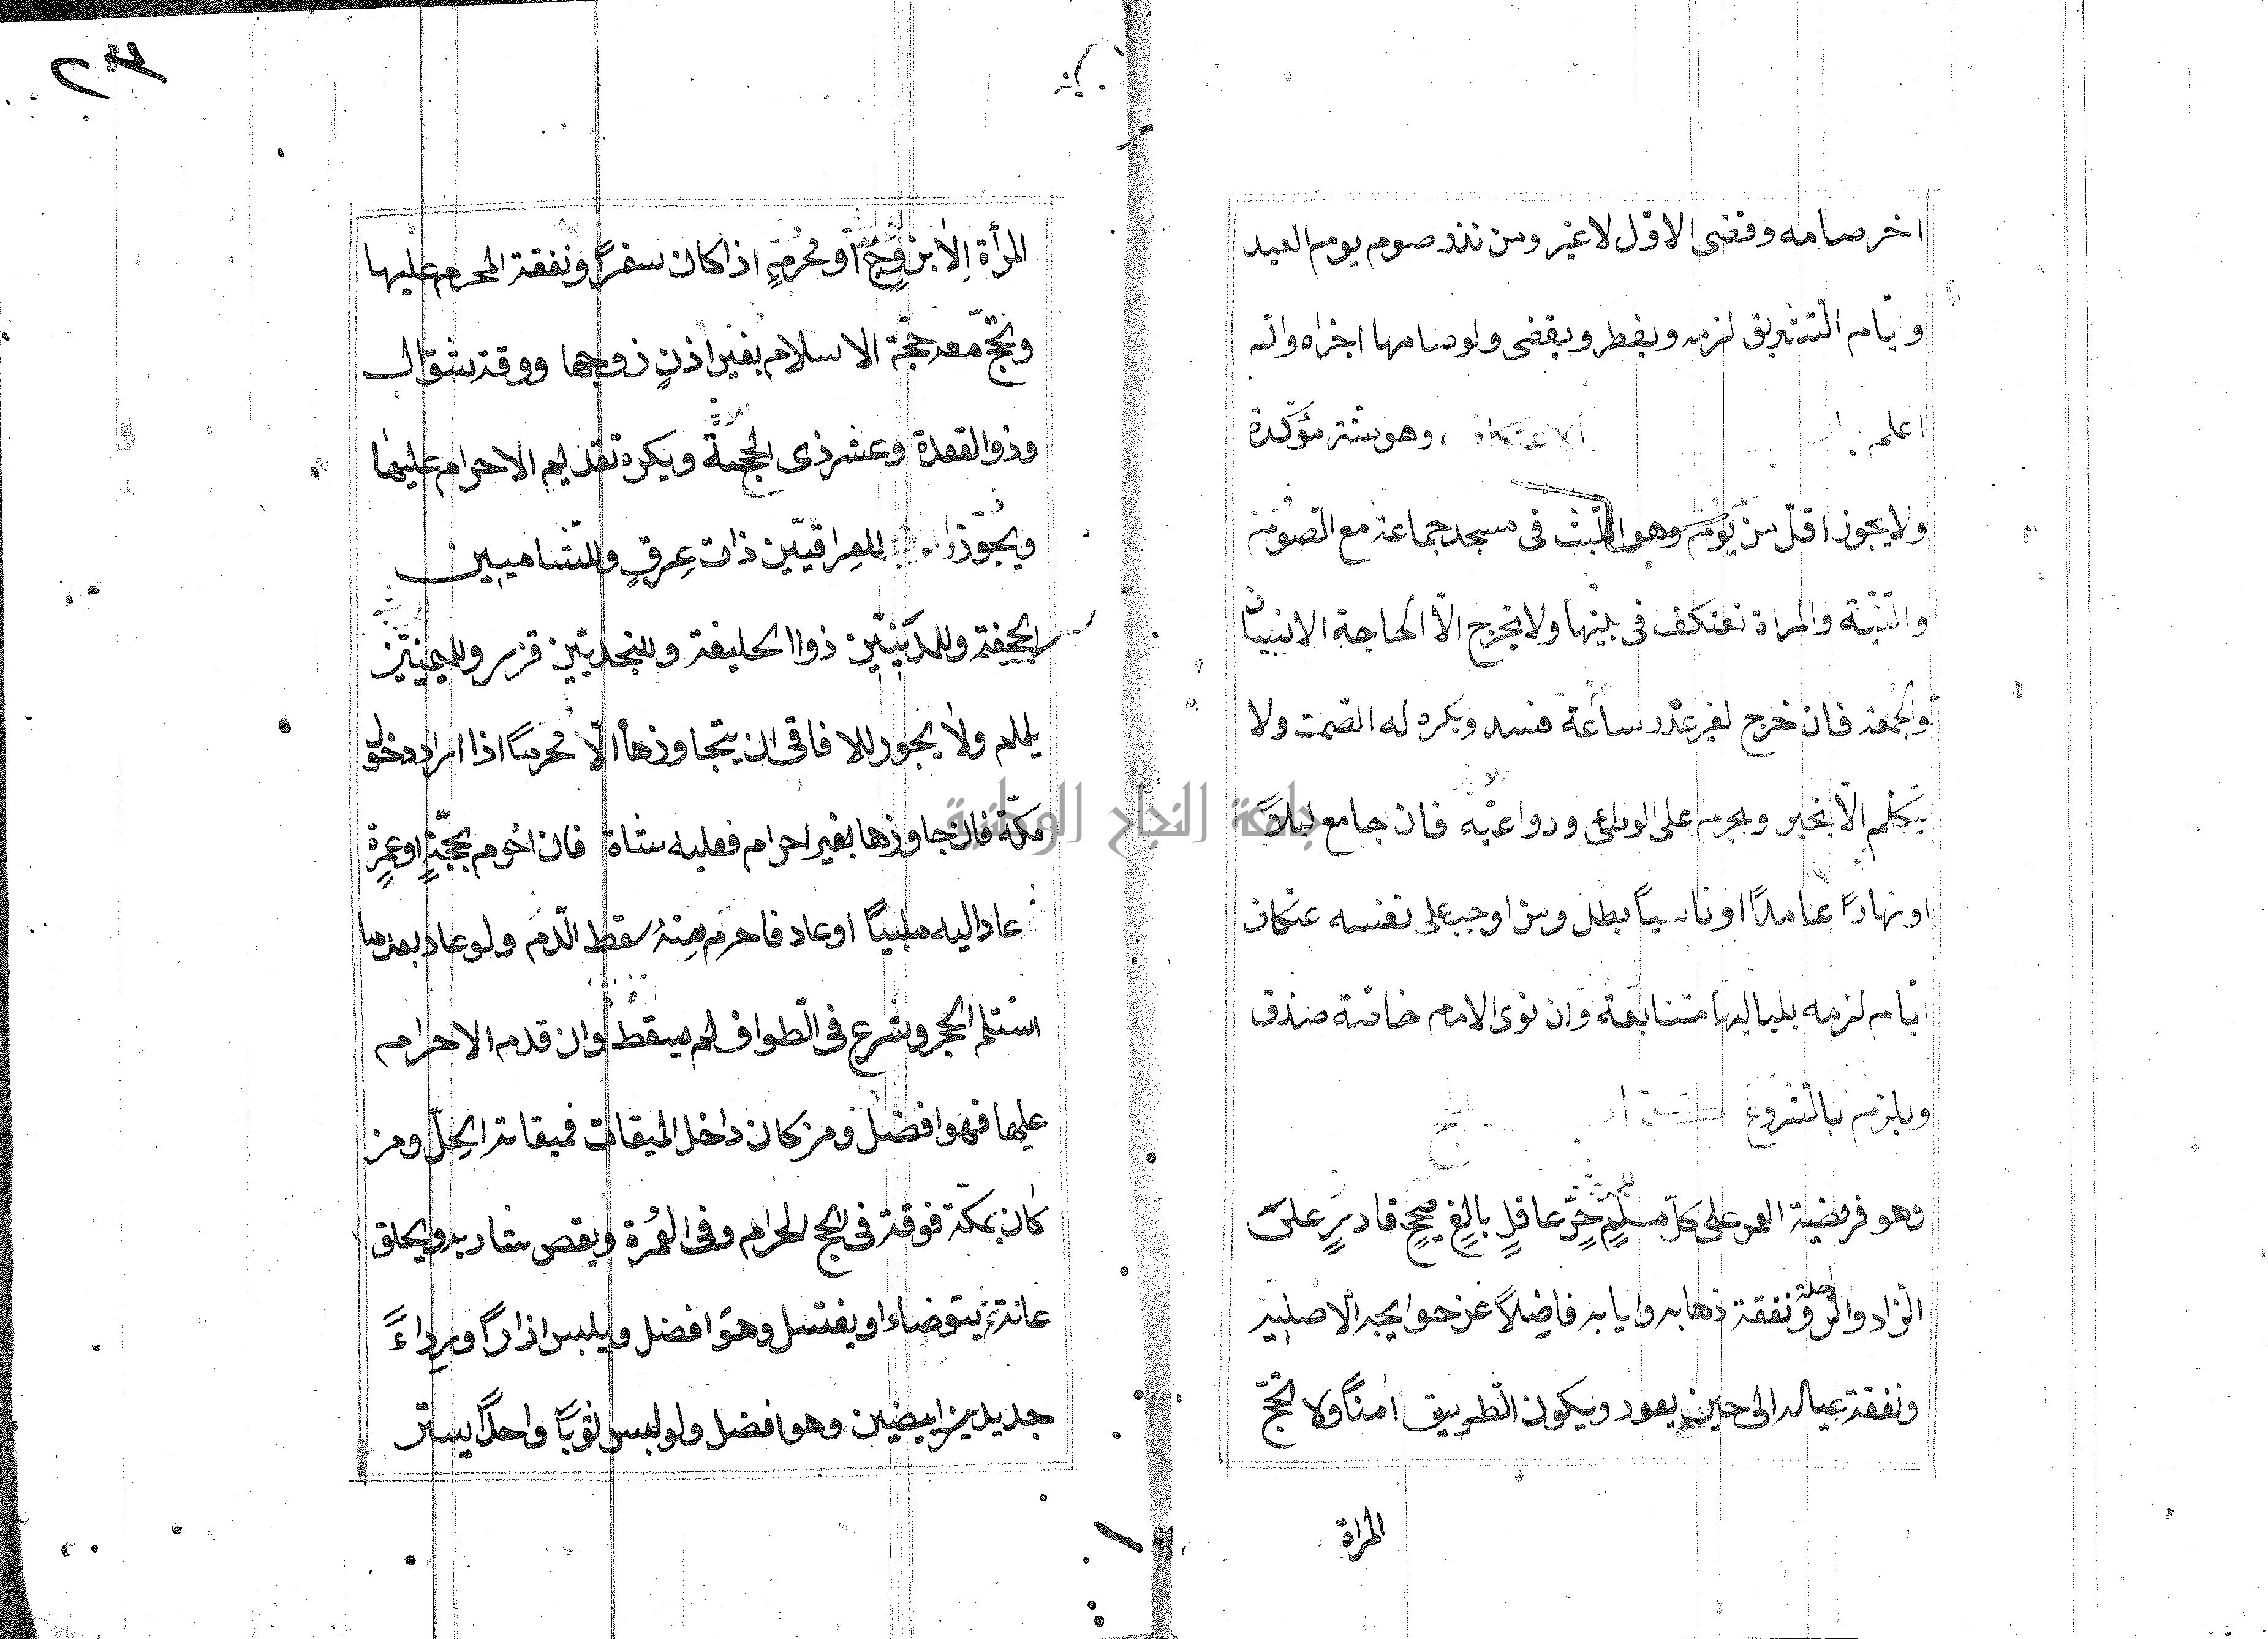 اخر صامه وقضى الاوّل لا غير ومن نذر صوم يوم العيد
وايّام التشريق لزمه ويفطر ويقضى ولو صامها اجزاه والله
اعلم الاعتكاف وهو سنّة مؤكّدة
ولا يجوز اقلّ من يوم وهو اللّبث فى مسجد جماعة مع الصّوم
والنّيّة والمراة تعتكف فى بيتها ولا يخرج الّا لحاجة الانسان
والجمعة فان خرج لغير عذر ساعة فسد ويكره له الصّمت ولا
يتكلم الّا بخير ويحرم على الوطئ ودواعيه فان جامع ليلاً
او نهارًا عامدًا او ناسيًا بطل ومن اوجب على نفسه عتكاف
ايّام لزمه بلياليها متتابعة وان نوى الامام خاصّة صدق
ويلزم بالشّروع الحج
وهو فريضة العمر على كلّ مسلمٍ حرٍّ عاقلٍ بالغٍ صحيحٍ قادرٍ على
الزّاد والرّاحلة ونفقة ذهابه وايابه فاضِلاً عن حوايجه الاصليّة
ونفقة عياله الى حين يعود ويكون الطّريق امنًا ولا تحجّ
المراة
المرأة الّا بزوجٍ او محرمٍ اذا كان سفرًا ونفقة المحرم عليها
وتحجّ معه حجّة الاسلام بغير اذنٍ زوجها ووقته شوّال
وذو القعدة وعشر ذى الحجّة ويكره تقديم الاحرام عليها
ويجوز للعراقيّين ذات عِرقٍ وللشّاميين
الجحفة وللمدينيّين ذوا الحليفة وللنجديّين قرن ولليمنيّين
يلملم ولا يجوز للافاقى ان يتجاوزها الّا محرمًا اذا اراد دخول
مكّة فان جاوزها بغير احرام فعليه شاة فان احرم بحجّةٍ او عمرةٍ
عاد اليه ملبيًا او عاد فاحرم منه سقط الدّم ولو عاد بعد ما
استلم الحجر وشرع فى الطّواف لم يسقط وان قدم الاحرام
عليها فهو افضل ومن كان داخل الميقات فميقاته الحِلّ ومن
كان بمكّة فوقته فى الحج الحرام وفى العُمرة ويقص شاربه ويحلق
عانته يتوضاء او يغتسل وهو افضل ويلبس ازارًا ورداءً
جديدين ابيضين وهو افضل ولو لبس ثوبًا واحدًا يستر
جامعة النجاح الوطنية